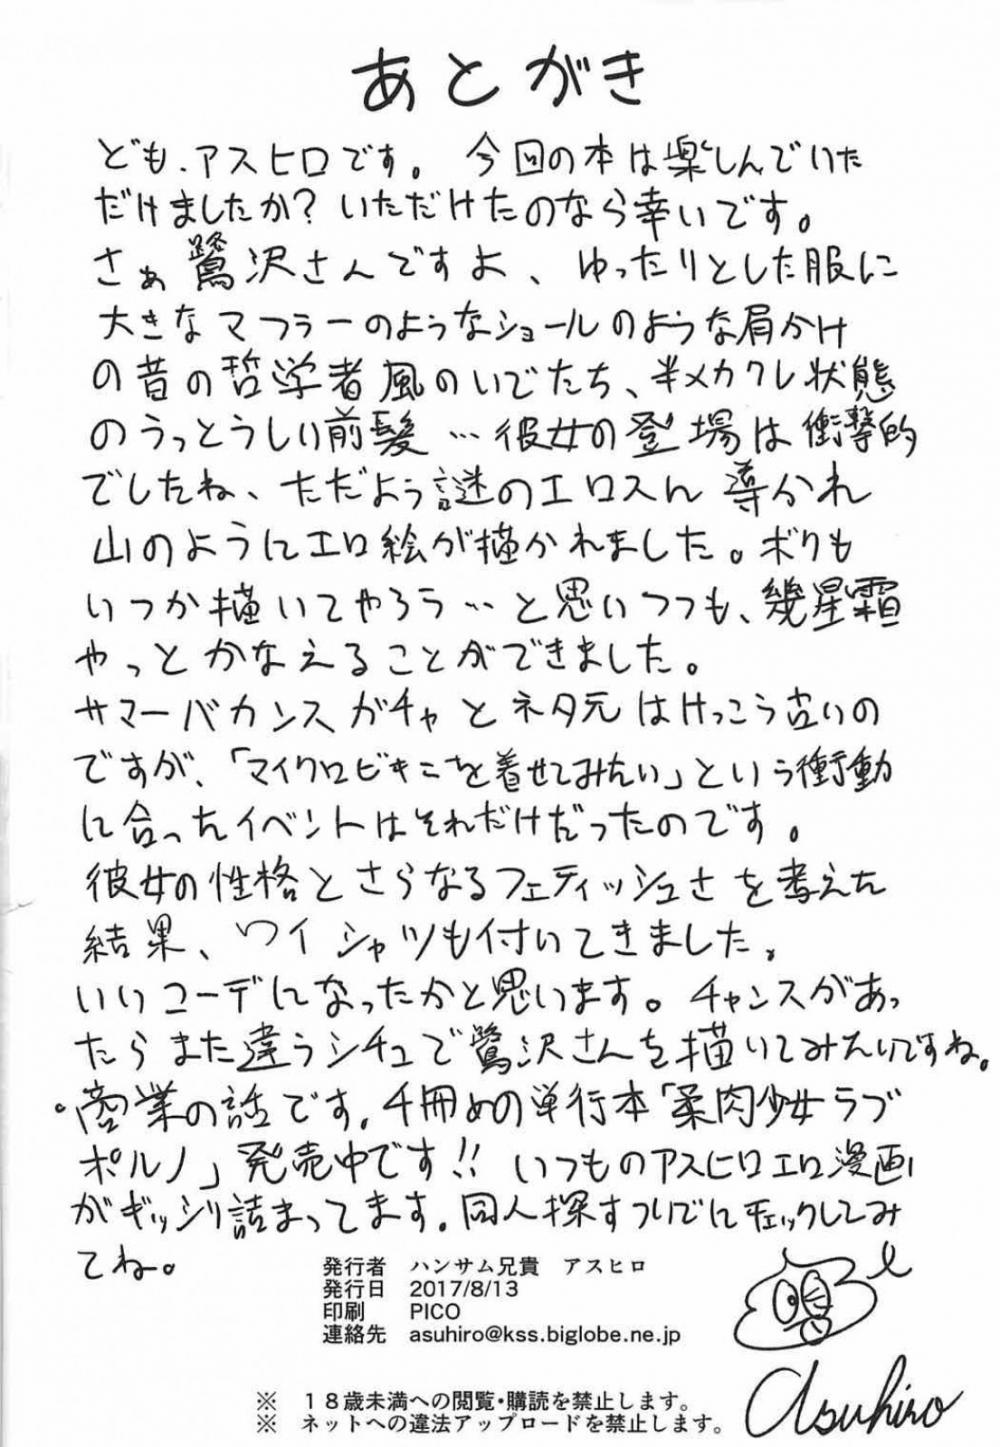 あとがき
ども、アスヒロです。 今回の本は楽しんでいた
だけましたか? いただけたのなら幸いです。
さぁ鷺沢さんですよ、ゆったりとした服に
大きなマフラーのようなショールのような肩かけ
の昔の哲学者風のいでたち、半メカクレ状態
のうっとうしい前髪…彼女の登場は衝撃的
でしたね、ただよう謎のエロスん導かれ
山のようにエロ絵が描かれました。ボクも
いつか描いてやろう…と思いつつも、幾星霜
やっとかなえることができました。
サマーバカンスガチャとネタ元はけっこう古いの
ですが、「マイクロビキニを着せてみたい」という衝動
に合ったイベントはそれだけだったのです。
彼女の性格とさらなるフェティッシュさを考えた
結果、ワイシャツも付いてきました。
いいコーデになったかと思います。チャンスがあっ
たらまた違うシチュで鷺沢さんを描いてみたいですね。
・商業の話です。4冊めの単行本「柔肉少女ラブ
ポルノ」発売中です!! いつものアスヒロエロ漫画
がギッシリ詰まってます。同人探すついでにチェックしてみ
てね。
発行者 ハンサム兄貴 アスヒロ
発行日 2017/8/13
印刷 PICO
連絡先 asuhiro@kss.biglobe.ne.jp
Asuhiro
※ 18歳未満への閲覧・購読を禁止します。
※ ネットへの違法アップロードを禁止します。